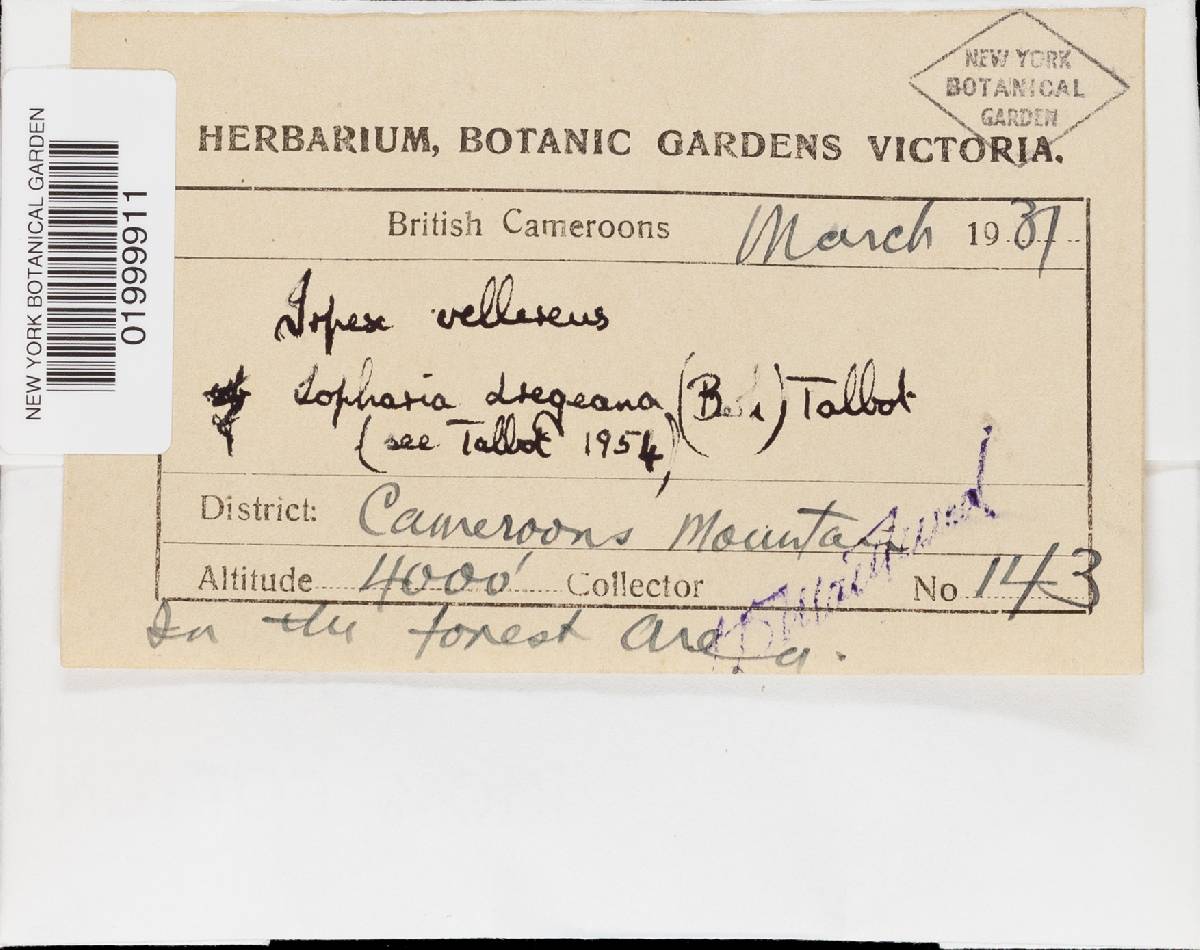 NEW YORK
BOTANICAL
GARDEN
HERBARIUM, BOTANIC GARDENS VICTORIA.
NEW YORK BOTANICAL GARDEN
01999911
British Cameroons March 1931
Irpex vellereus
Lopharia dregeana (Berk.) Talbot
(see Talbot 1954)
District: Cameroons Mountain
Altitude 4000' Collector No 143
In the forest area.